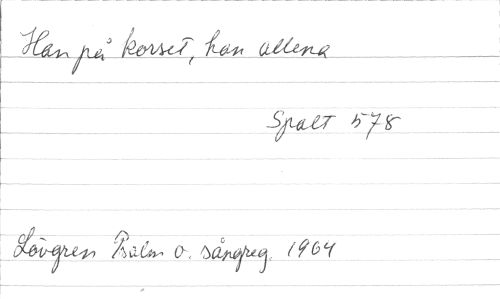 Han på korset, han allena
Spalt 578
Lövgren Psalm o. sångreg. 1964